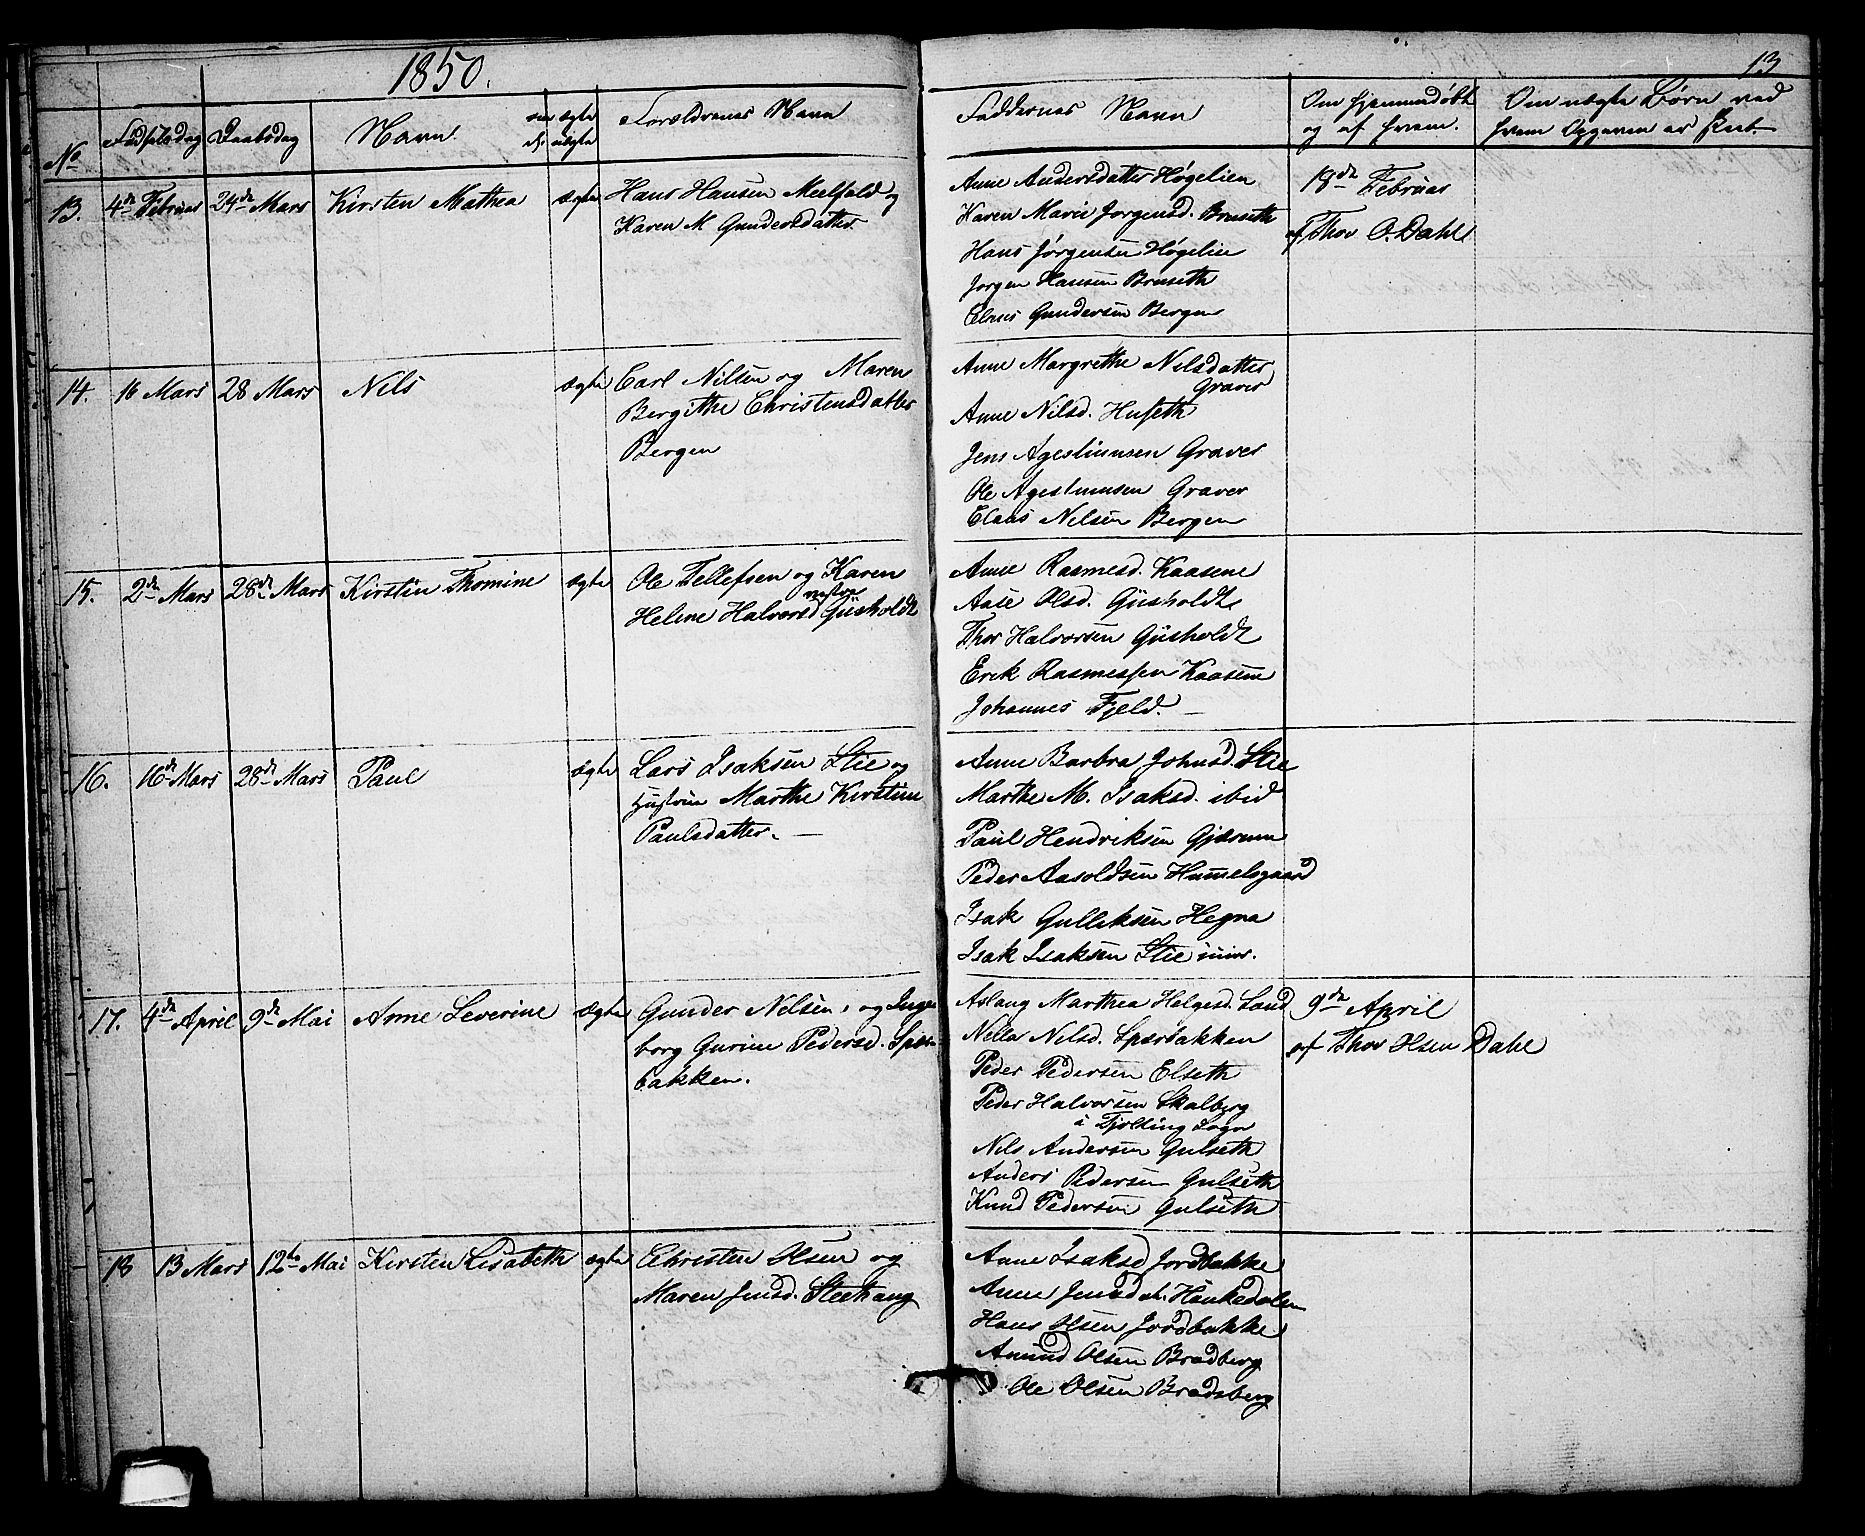 1850.
13
No
Fødselsdag
Daabsdag
Navn
om ægte
el. uægte
Forældrenes Navn
Faddernes Navn
Om hjemmedøbt
og af hvem.
Om uægte Børn ved
hvem Opgaven er skeet.
13.
4de Februar
24de Mars
Kirsten Mathea
ægte
Hans Hansen Meelfald og
Karen M Gundersdatter.
Anne Andersdatter Høgelien
Karen Marie Jørgensd. Bruseth
Hans Jørgensen Høgelien
Jørgen Hansen Bruseth
Claus Gundersen Bergen
18de Februar
af Thov O. Dahl
14.
16 Mars
28 Mars
Nils
ægte
Carl Nilsen og Maren
Bergithe Christensdatter
Bergen
Anne Margrethe Nilsdatter
Graver
Anne Nilsd. Huseth
Jens Agestinusen Graver
Ole Agestinusen Graver
Claus Nilsen Bergen
15.
2de Mars
28de Mars
Kirstin Thomine
ægte
Ole Tellefsen og Karen
Helene Halvorsd Gusholdt
Anne Rasmesd. Kaasene
Aase Olsd. Gusholdt
Thor Halvorsen Gusholdt
Erik Rasmessen Kaasene
Johannes Fjeld. —
16.
16de Mars
28de Mars
Paul
ægte
Lars Isaksen Stie og
Hustrue Marthe Kirstine
Paulsdatter. —
Anne Barbra Johnsd. Stie
Marthe M. Isaksd. ibid
Paul Hendriksen Gjærum
Peder Aasoldsen Hummelsgaard
Isak Gulliksen Hegna
Isak Isaksen Stie
17.
4de April
9de Mai
Anne Severine
ægte
Gunder Nelsen, og Inge
borg Gurine Pedersd. Spær
bakken.
Aslaug Marthea Helgesd. Sand
Nella Nilsd. Spærbakken
Peder Pedersen Elseth
Peder Halvorsen Skalberg
i Fjolling Sogn
Nils Andersen Gulseth
Anders Pedersen Gulseth
Knud Pedersen Gulseth
9de April
af Thov Olsen Dahl
18
13 Mars
12te Mai
Kirsten Lisabeth
ægte
Christen Olsen og
Maren Jensd. Steehaug
Anne Isaksd Jordbakke
Anne Jensdat. Haukedalen
Hans Olsen Jordbakke
Amund Olsen Bradberg
Ole Olsen Bradsberg